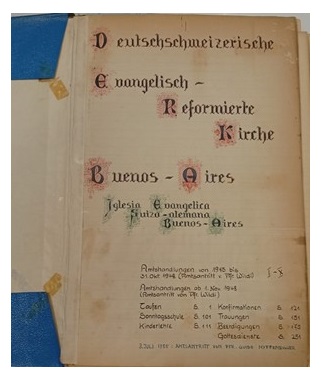 Deutschschweizerische
Evangelisch-
Reformierte
Kirche
Buenos-Aires
Iglesia Evangelica
Suizo-alemana
Buenos-Aires
Amtshandlungen von 1945 bis
31. Okt 1948 (Amtsantritt v. Pfr Wildi)
Amtshandlungen ab 1. Nov. 1948
(Amtsantritt von Pfr. Wildi)
Taufen S. 1 Konfirmationen S. 121
Sonntagsschule S. 101 Trauungen S. 131
Kinderlehre S. 111 Bestattungen S.
Gottesdienste S. 251